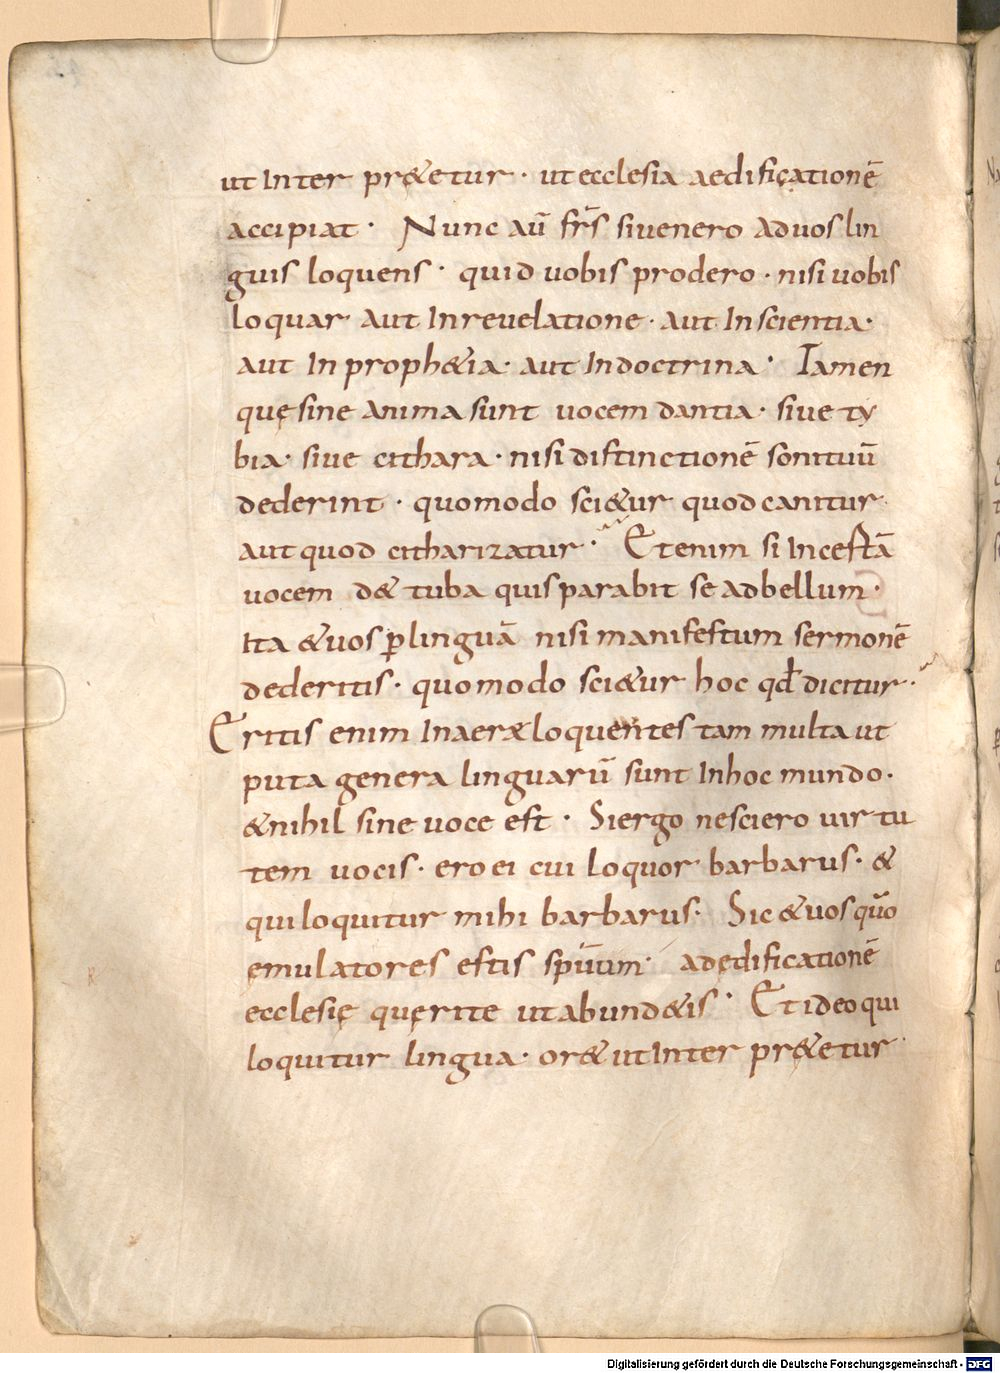 ut Inter pr&etur · ut ecclesia aedificationē
accipiat · Nunc aū frs̄ si uenero ad uos lin
guis loquens · quid uobis prodero · nisi uobis
loquar aut In reuelatione · aut In scientia ·
aut In proph&ia · aut In doctrina · Tamen
quę sine anima sunt uocem dantia · siue ty
bia · siue cithara · nisi distinctionē sonituū
dederint · quomodo sci&ur quod canitur
aut quod citharizatur · Etenim si Incertā
uocem d& tuba quis parabit se ad bellum ·
Ita & uos p̲ linguā nisi manifestum sermonē
dederitis · quomodo sci&ur hoc qd̄ dicitur ·
Eritis enim In aerę loquentes tam multa ut
puta genera linguarū sunt In hoc mundo ·
& nihil sine uoce est · Si ergo nesciero uirtu
tem uocis · ero ei cui loquor barbarus · &
qui loquitur mihi barbarus · Sic & uos quō
emulatores estis spūum · ad ędificationē
ecclesię quęrite ut abund&is · Et ideo qui
loquitur lingua · or& ut Inter pr&etur
R
Digitalisierung gefördert durch die Deutsche Forschungsgemeinschaft - DFG